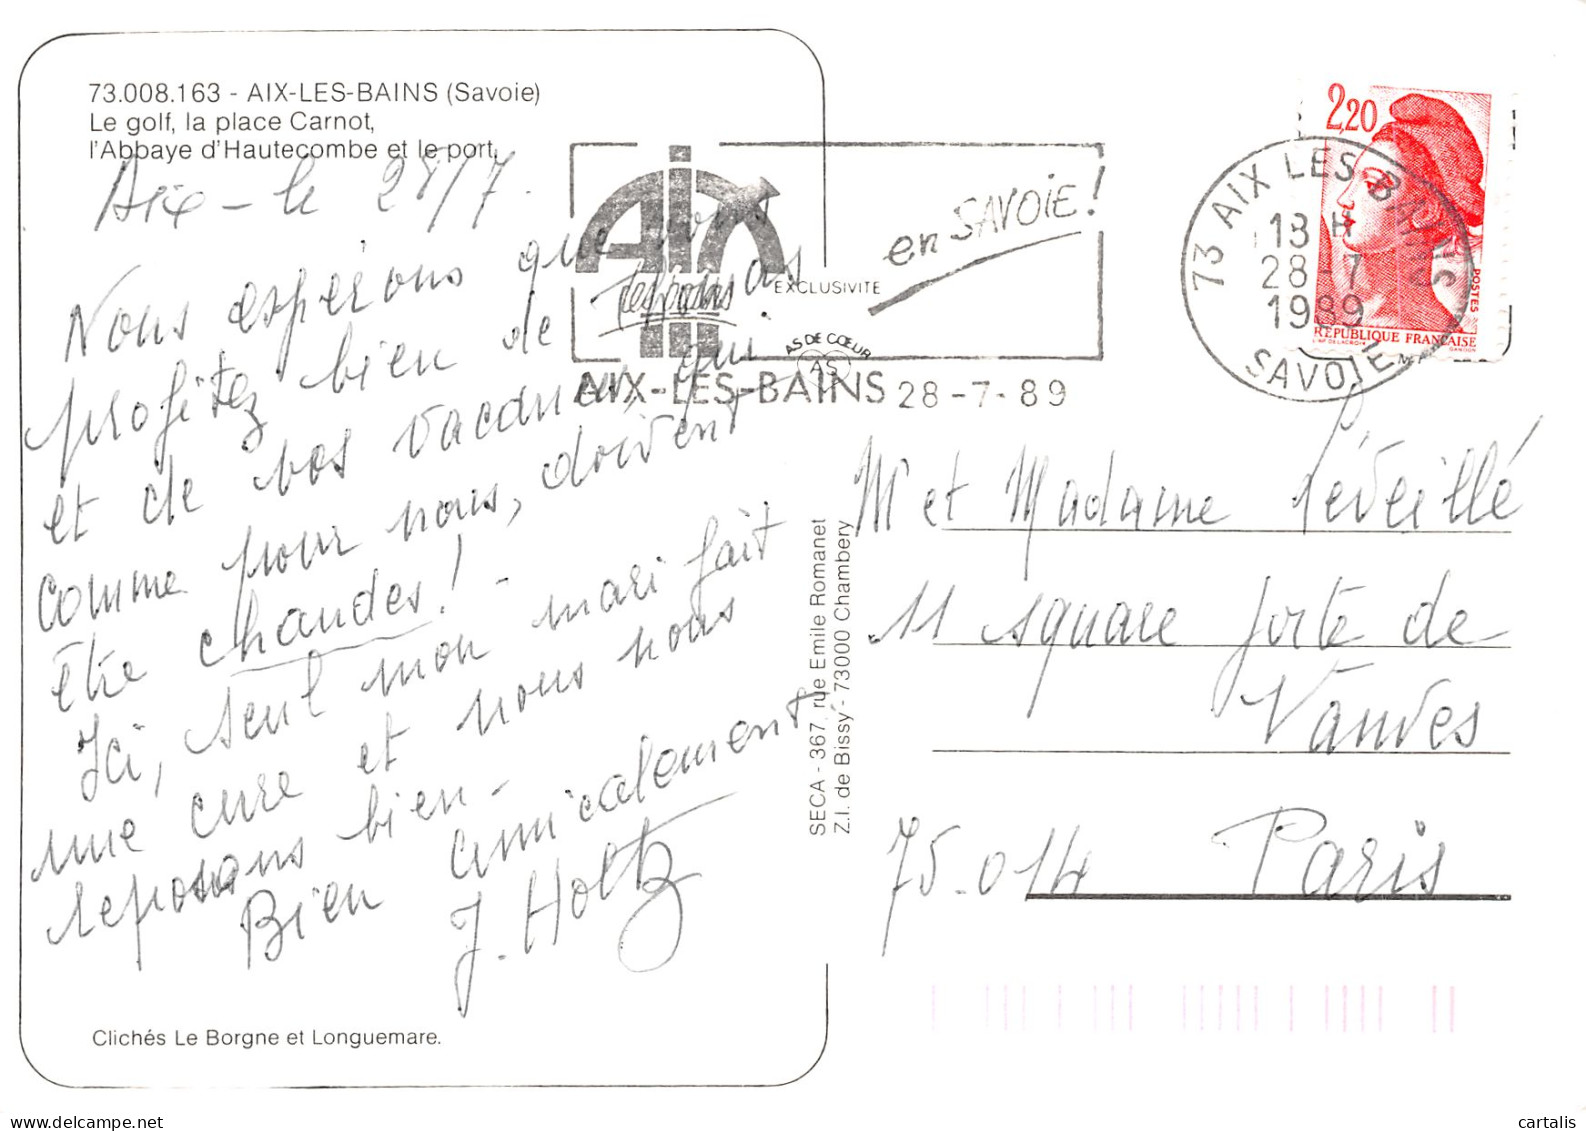 73.008.163 - AIX-LES-BAINS (Savoie)
Le golf, la place Carnot,
l'Abbaye d'Hautecombe et le port.
Aix - le 28/7.
Nous espérons que vous
profitez bien de
et de vos vacances, qui
comme pour nous, doivent
être chaudes! -
Ici, seul mon mari fait
une cure et nous nous
reposons bien -
Bien amicalement
J. Holtz
Clichés Le Borgne et Longuemare.
SECA - 367, rue Emile Romanet
Z.I. de Bissy - 73000 Chambery
EXCLUSIVITE
AS DE CŒUR
AS
AIX
les bains
en SAVOIE!
AIX-LES-BAINS 28-7-89
73 AIX LES BAINS
18 H
28-7
1989
SAVOIE
2,20
POSTES
RÉPUBLIQUE FRANÇAISE
GANDON
Mr et Madame Léveillé
11 square Porte de
Vanves
75.014 Paris
Delcampe.net
cartalis